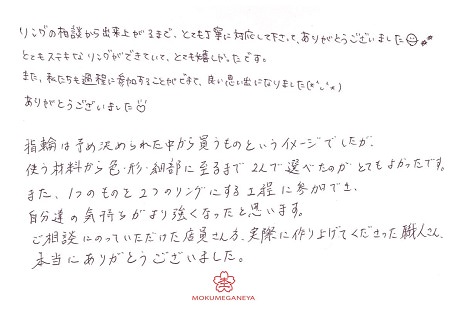 リングの相談から出来上がるまで、とても丁寧に対応して下さって、ありがとうございました
とてもステキなリングができていて、とても嬉しかったです。
また、私たちも過程に参加することができて、良い思い出になりました(*^_^*)
ありがとうございました
指輪は予め決められた中から買うものというイメージでしたが、
使う材料から色・形・細部に至るまで2人で選べたのがとてもよかったです。
また、1つのものを2つのリングにする工程に参加でき、
自分達の気持ちがより強くなったと思います。
ご相談にのっていただけた店員さん方、実際に作り上げてくださった職人さん、
本当にありがとうございました。
MOKUMEGANEYA